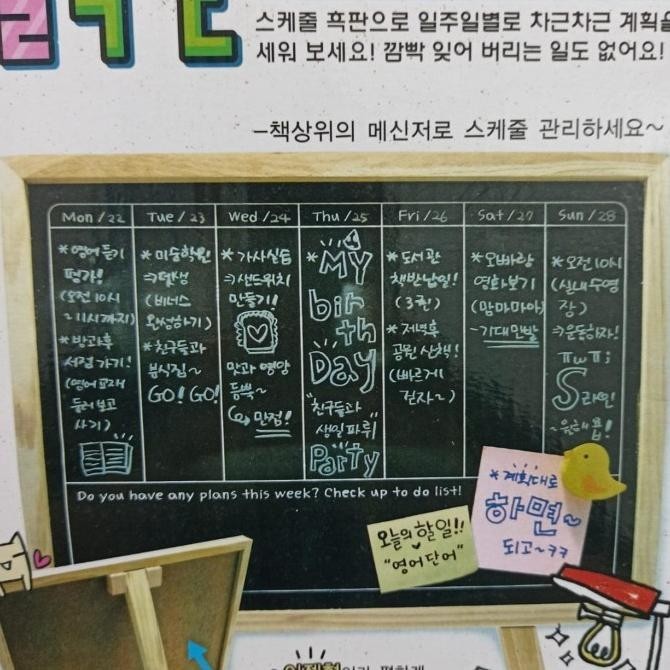 스케줄 흑판으로 일주일별로 차근차근 계획을
세워 보세요! 깜빡 잊어 버리는 일도 없어요!
-책상위의 메신저로 스케줄 관리하세요~
Mon / 22
*영어 듣기
평가!
(오전 10시
~11시까지)
*방과후
서점 가기!
(영어 교재
둘러보고
사기)
Tue / 23
*미술학원!
⇒뎃생
(비너스
완성하기)
*친구들과
분식집~
GO! GO!
Wed /24
*가사실습
⇒샌드위치
만들기!!
맛과 영양
듬뿍~
만점!
Thu /25
*MY
bir
th
Day
"친구들과
생일파뤼"
Party
Fri /26
*도서관
책반납일!
(3권)
*저녁후
공원 산책!
(빠르게
걷자~)
Sat /27
*오빠랑
영화보기
(맘마마이아)
-기대만발
Sun /28
*오전 10시
(실내수영
장)
⇒운동하자!
S라인!
Do you have any plans this week? Check up to do list!
오늘의 할일!!
"영어단어"
*계획대로
하면~
되고~ㅋㅋ